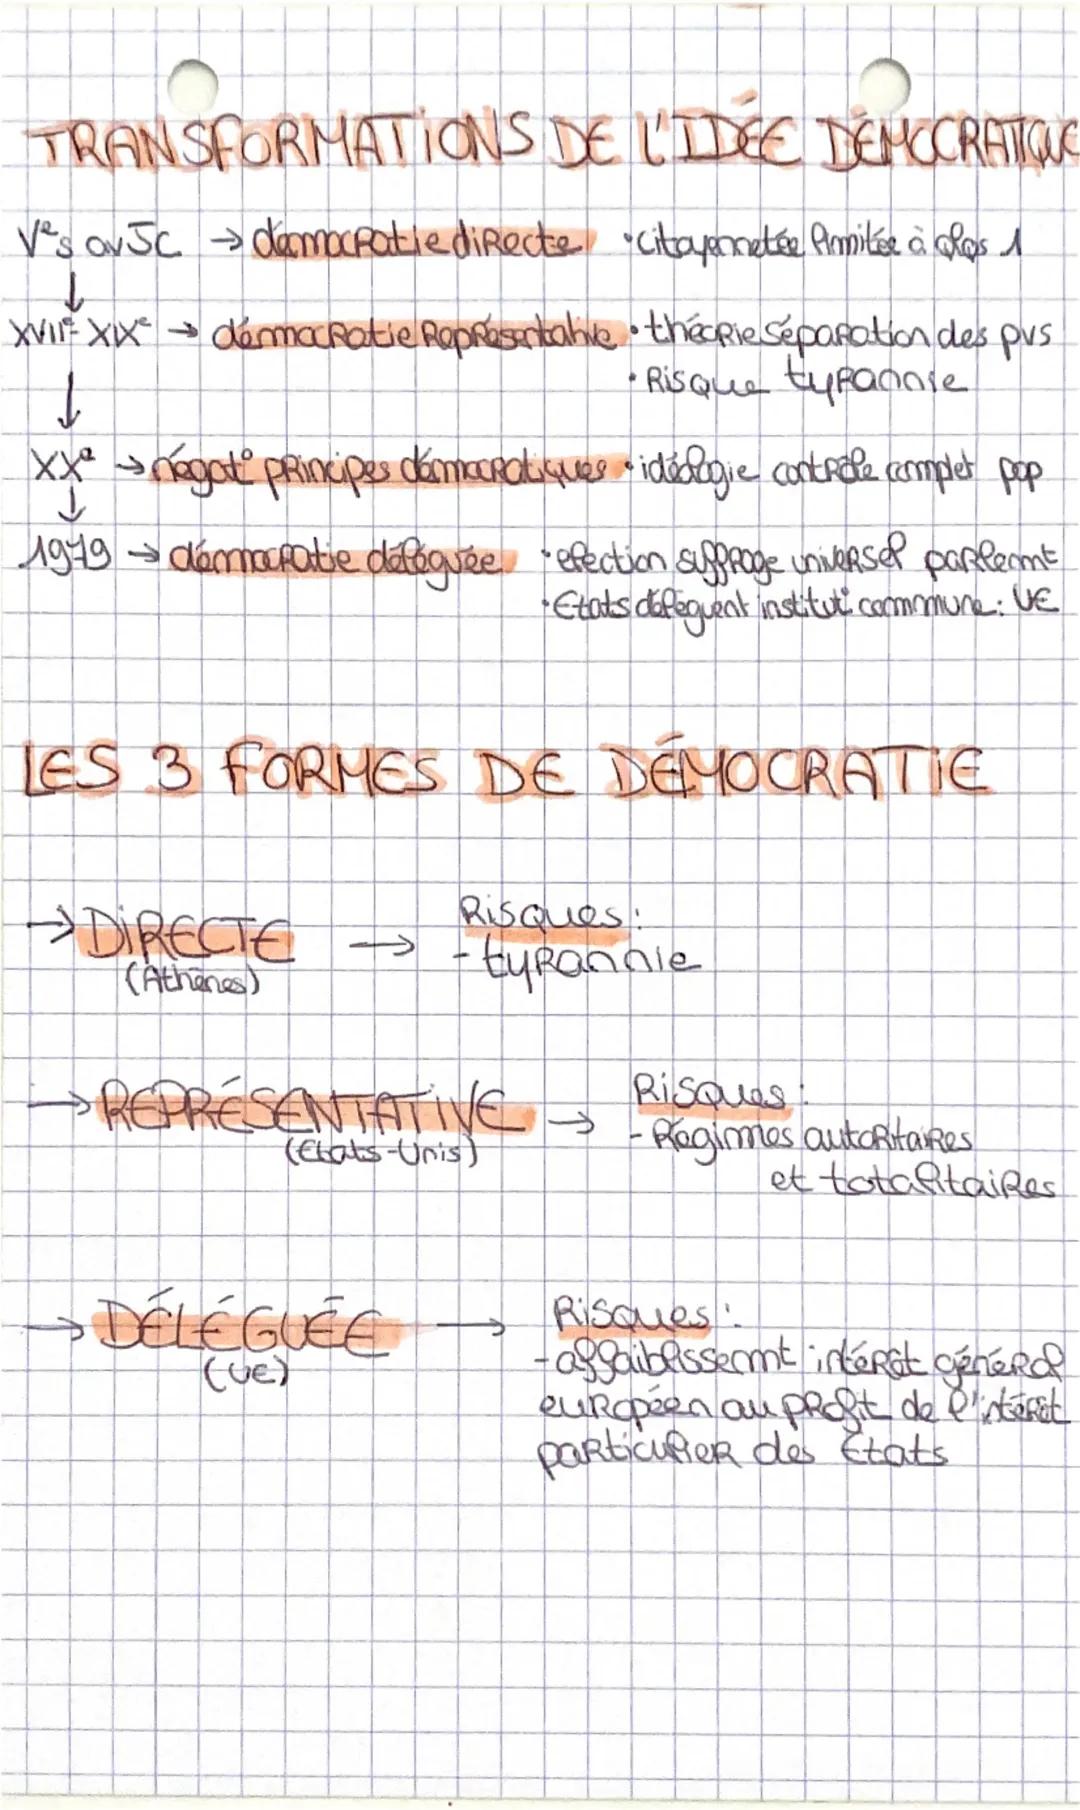 TRANSFORMATIONS DE L'IDÉE DÉMOCRATIQUE
Ve s av JC → démocratie directe • citoyenneté limitée à
↓
XVIIe XIXe → démocratie représentative • théorie séparation des pvs
• Risque tyrannie
↓
XXe → négat° principes démocratiques • idéologie contrôle complet pop
↓
1979 → démocratie déléguée • élection suffrage universel parlemnt
• Etats délèguent institut° commune : UE
LES 3 FORMES DE DÉMOCRATIE
→ DIRECTE → Risques :
(Athènes) - tyrannie
→ REPRÉSENTATIVE → Risques :
(Etats-Unis) - Régimes autoritaires
et totalitaires
→ DÉLÉGUÉE → Risques :
(UE) - affaiblissemnt intérêt général
européen au profit de l'intérêt
particulier des Etats